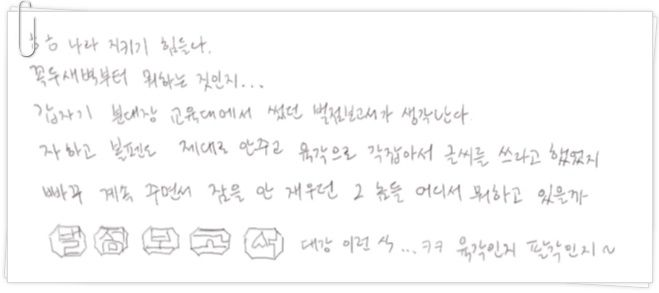 ㅎㅎ 나라 지키기 힘들다.
꼭두새벽부터 뭐하는 짓인지...
갑자기 분대장 교육대에서 썼던 벌점보고서가 생각난다
자 하고 볼펜도 제대로 안주고 육각으로 각잡아서 글씨를 쓰라고 했었지
빠꾸 계속 주면서 잠을 안 재우던 그 놈들 어디서 뭐하고 있을까
벌 점 보 고 서 대강 이런 식...ㅋㅋ 육각인지 팔각인지~